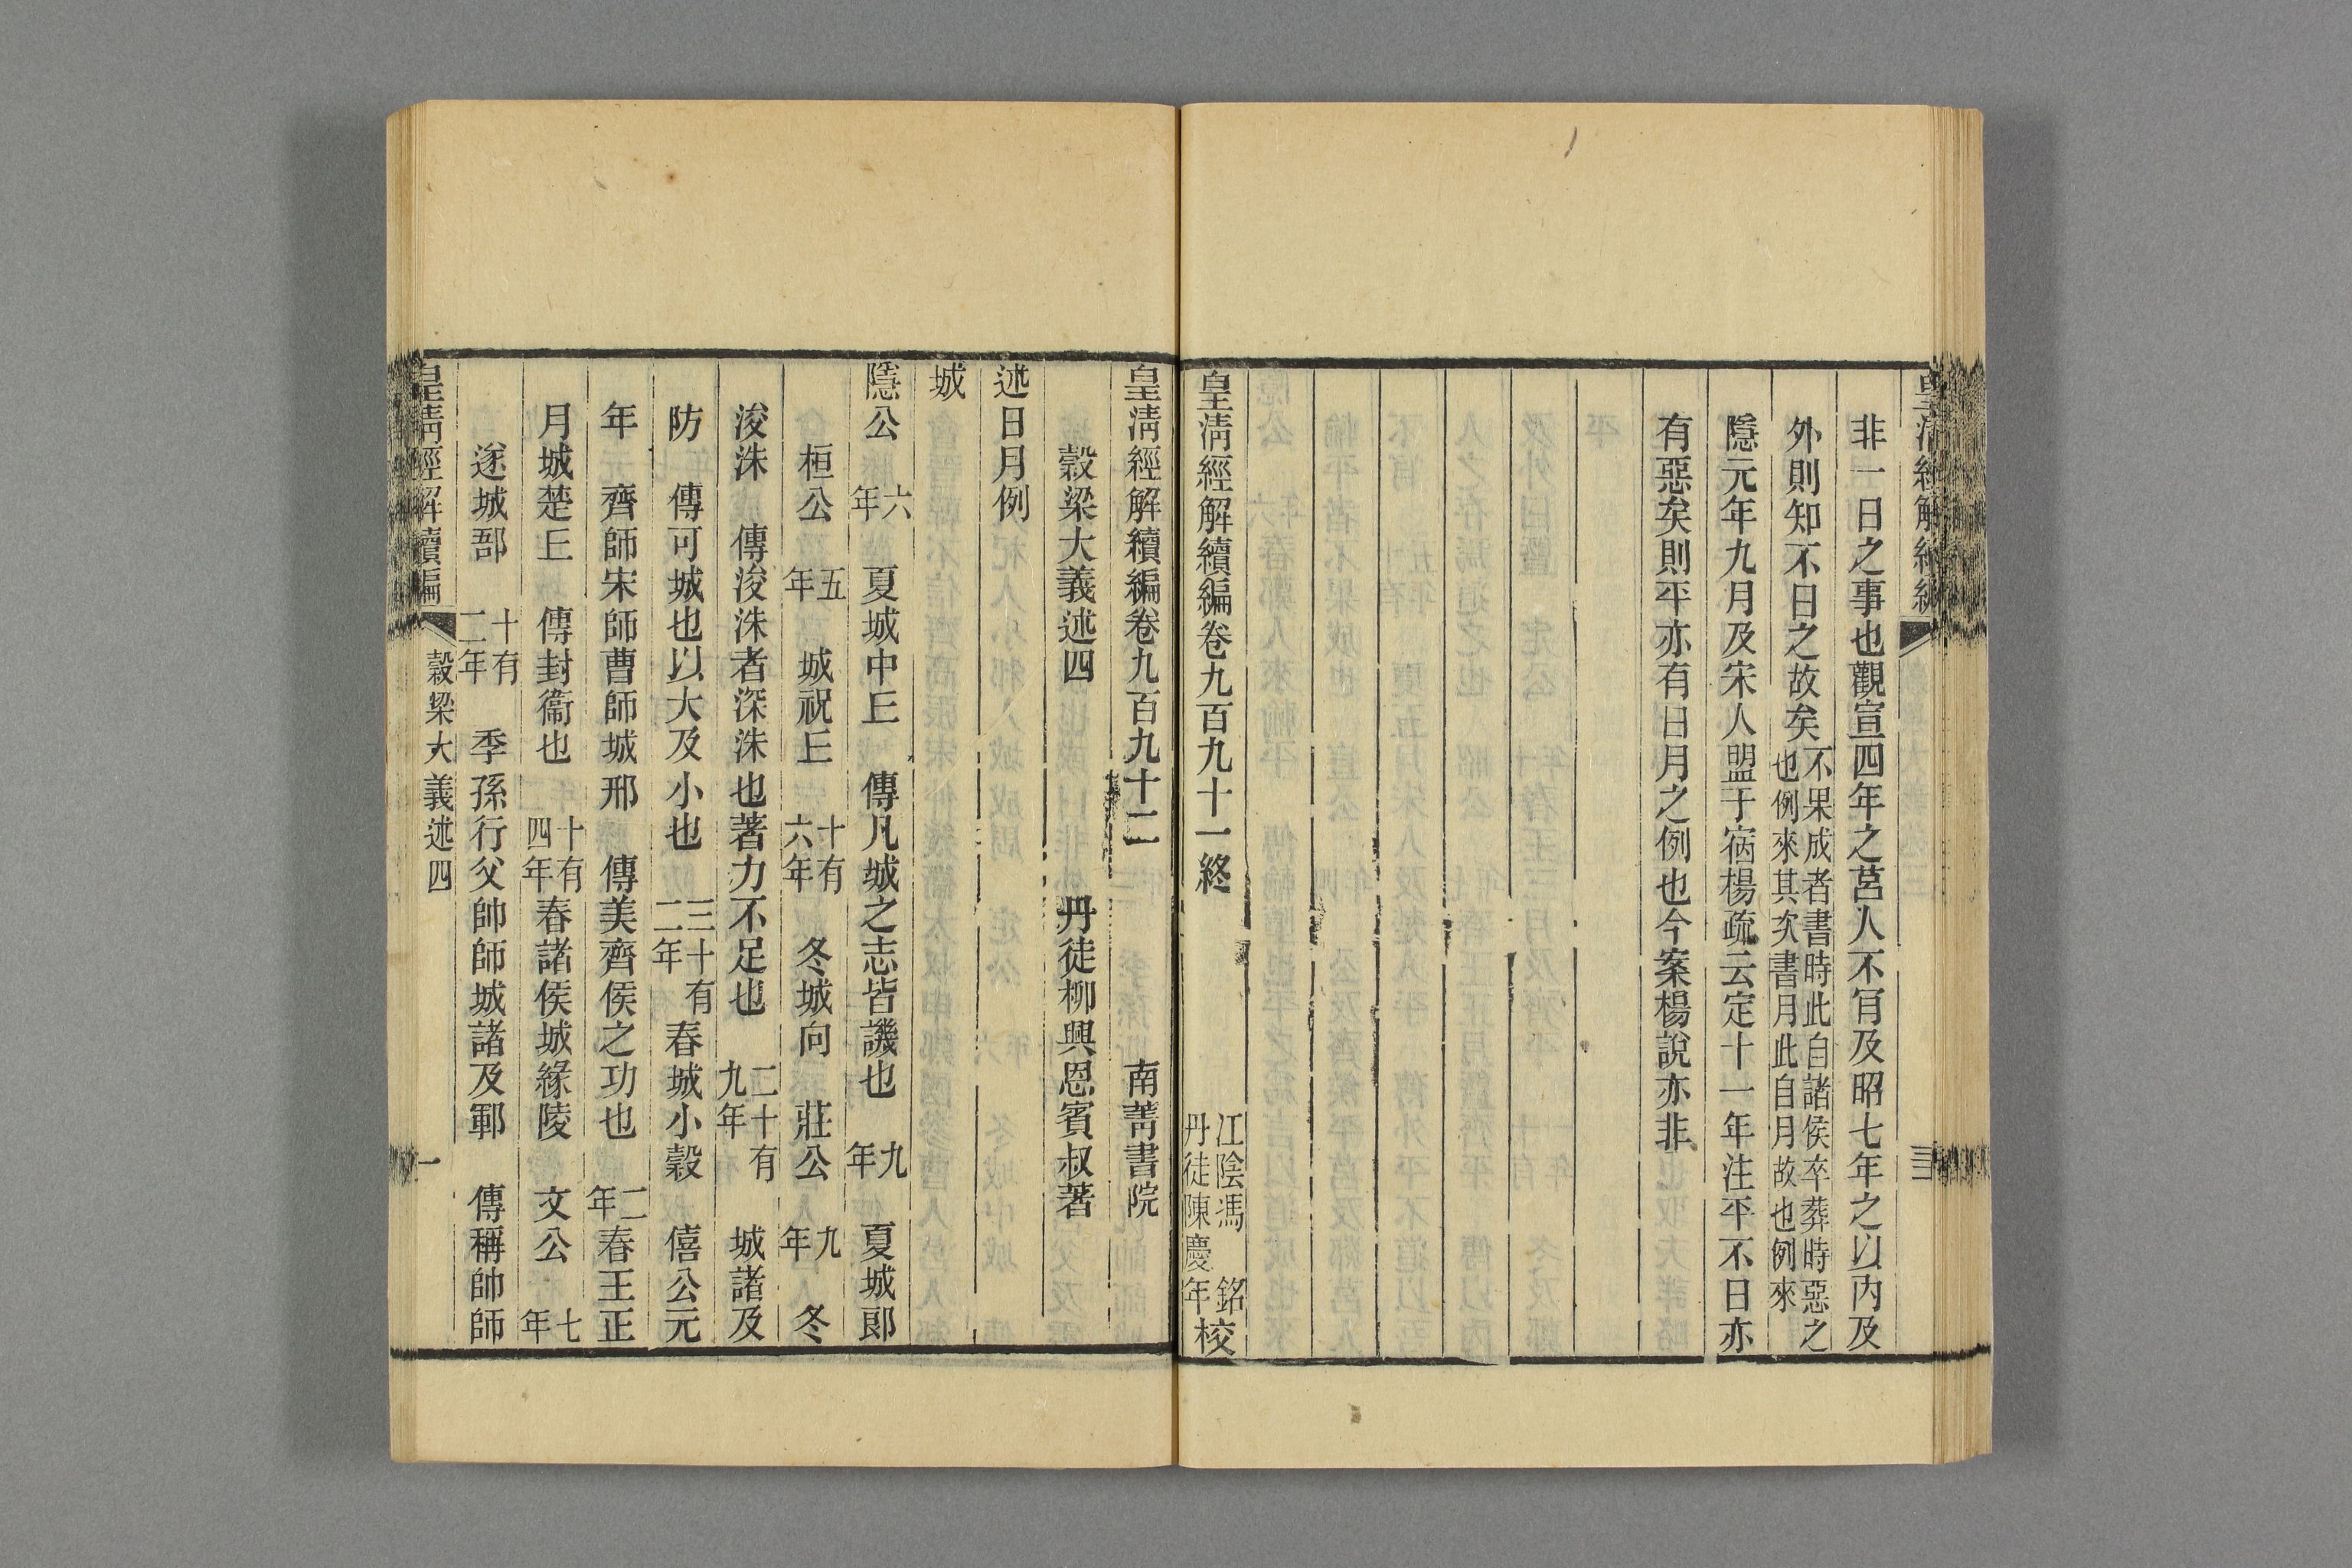 皇清經解續編
三
非一日之事也觀宣四年之莒人不肎及昭七年之以內及
外則知不日之故矣不果成者書時此自諸侯卒葬時惡之也例來其次書月此自月故也例來
隱元年九月及宋人盟于宿楊疏云定十一年注平不日亦
有惡矣則平亦有日月之例也今案楊說亦非
皇清經解續編卷九百九十一終 江陰馮銘丹徒陳慶年校
皇清經解續編卷九百九十二 南菁書院
穀梁大義述四 丹徒柳興恩賓叔著
述日月例
城
隱公 六年 夏城中丘 傳凡城之志皆譏也 九年 夏城郎
桓公 五年 城祝丘 十有六年 冬城向 莊公 九年 冬
浚洙 傳浚洙者深洙也著力不足也 二十有九年 城諸及
防 傳可城也以大及小也 三十有二年 春城小穀 僖公元
年 齊師宋師曹師城邢 傳美齊侯之功也 二年 春王正
月城楚丘 傳封衞也 十有四年 春諸侯城緣陵 文公 七年
遂城郚 十有二年 季孫行父帥師城諸及鄆 傳稱帥師
皇清經解續編 穀梁大義述四 一